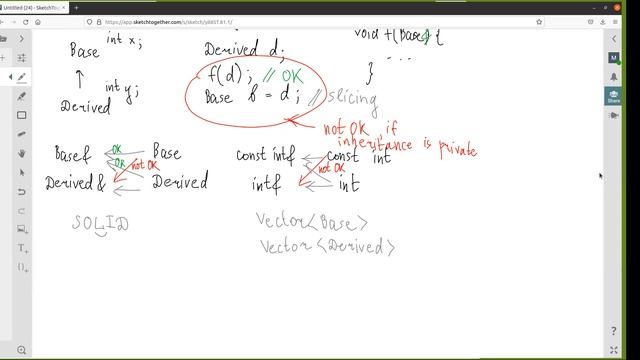 Untitled (24) - SketchTogether
https://app.sketchtogether.com/s/sketch/y8BST.81.1/
int x;
Base
int y;
Derived
Derived d;
f(d); // OK
Base b = d; // slicing
void f(Base& {
...
}
not OK, if
inheritance is private
Base& OK Base
OK not OK
Derived& Derived
const int& const int
not OK
int& int
SOLID
vector<Base>
vector<Derived>
M
Share